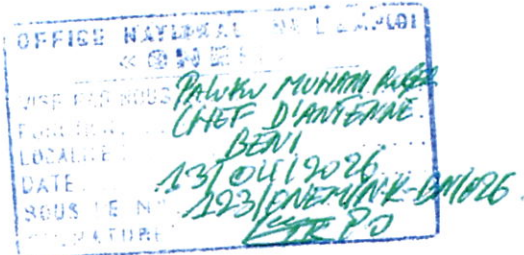 OFFICE NATIONAL DE L'EMPLOI
« ONEM »
VISE PAR NOUS PALUKU MUHANI ROGER
FONCTION CHEF D'ANTENNE
LOCALITE : BENI
DATE 13/04/2026
SOUS LE N° 123/ONEM/N-K-BNI/026
SIGNATURE